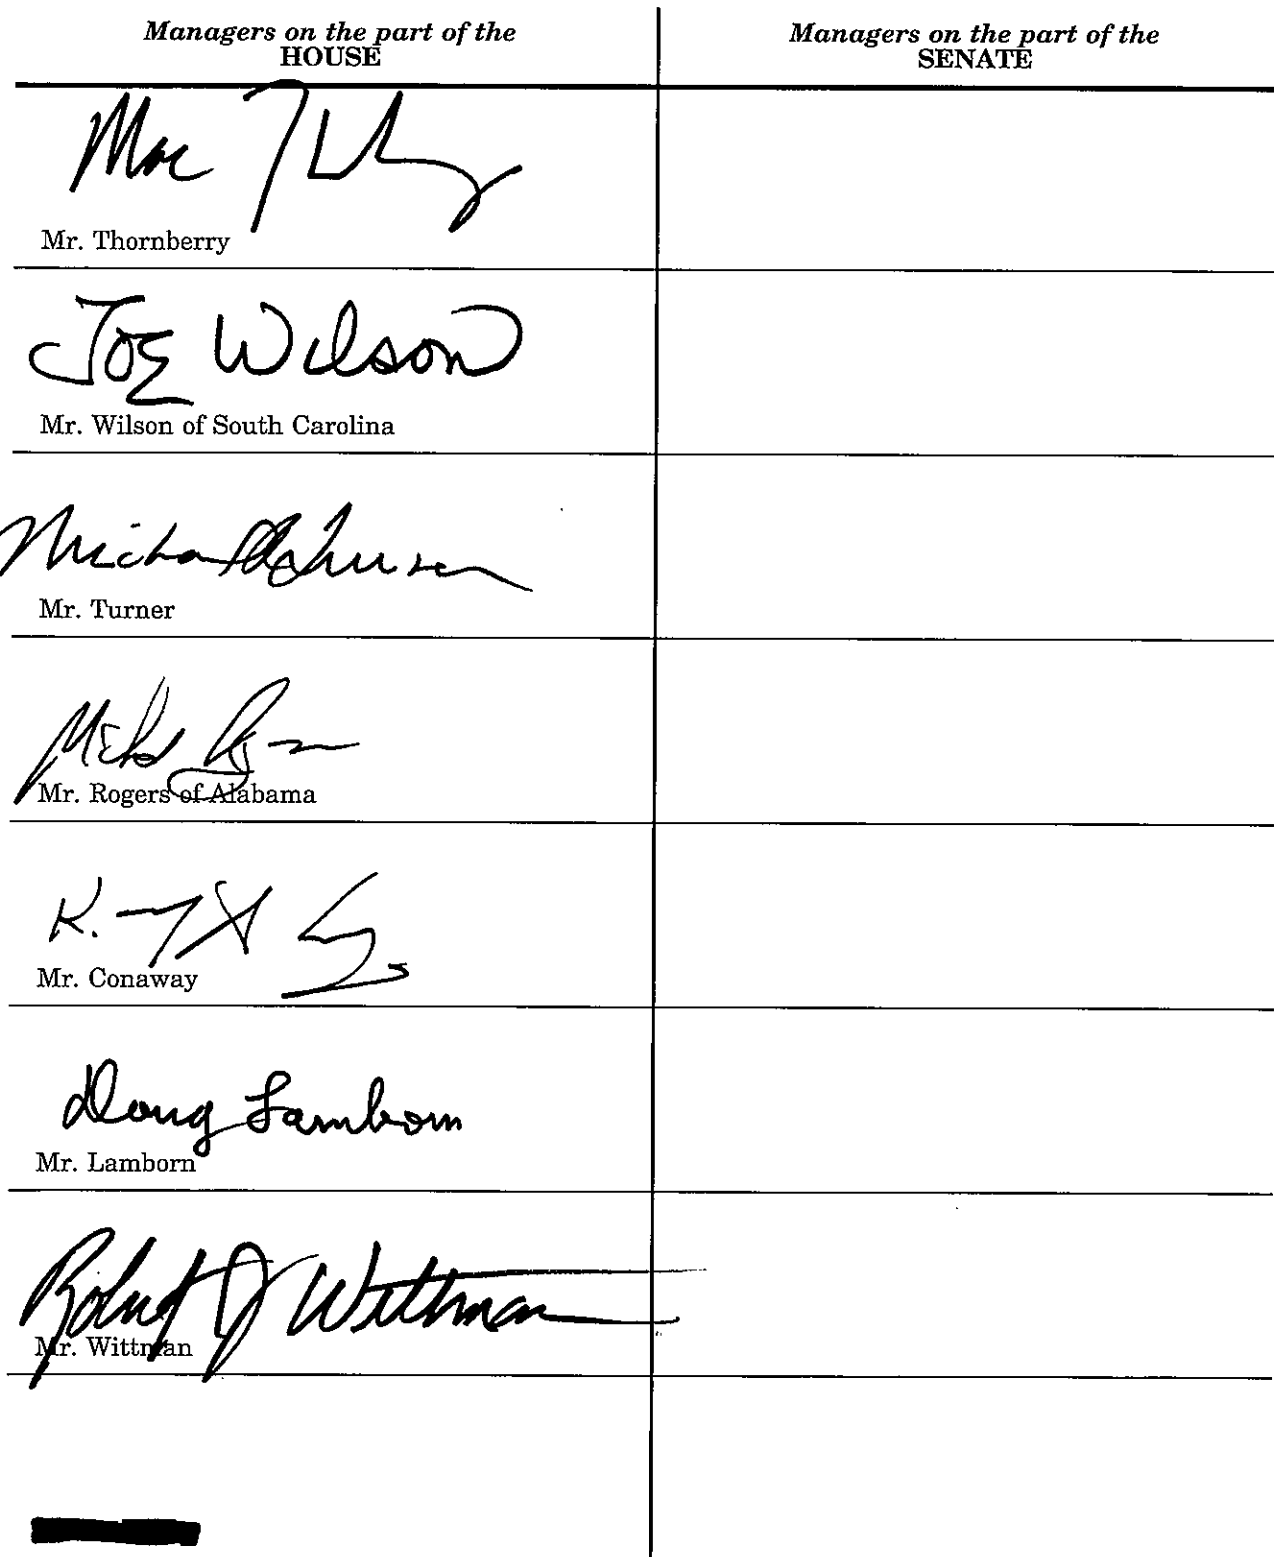 Managers on the part of the
HOUSE
Managers on the part of the
SENATE
Mac
Mr. Thornberry
Joe Wilson
Mr. Wilson of South Carolina
Michael Turner
Mr. Turner
Mike
Mr. Rogers of Alabama
K.
Mr. Conaway
Doug Lamborn
Mr. Lamborn
Robert J Wittman
Mr. Wittman